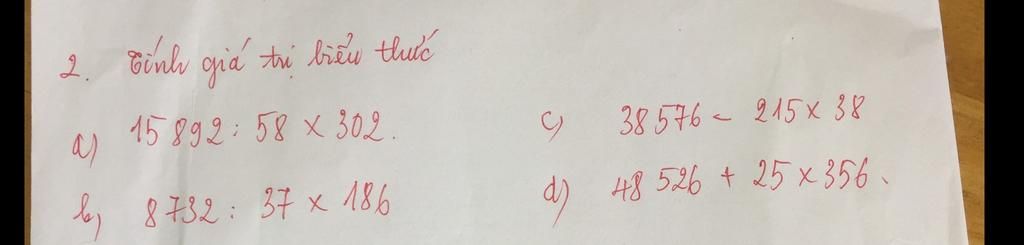 2. Tính giá trị biểu thức
a) 15 892 : 58 × 302.
b) 8732 : 37 × 186
c) 38576 - 215 × 38
d) 48 526 + 25 × 356.